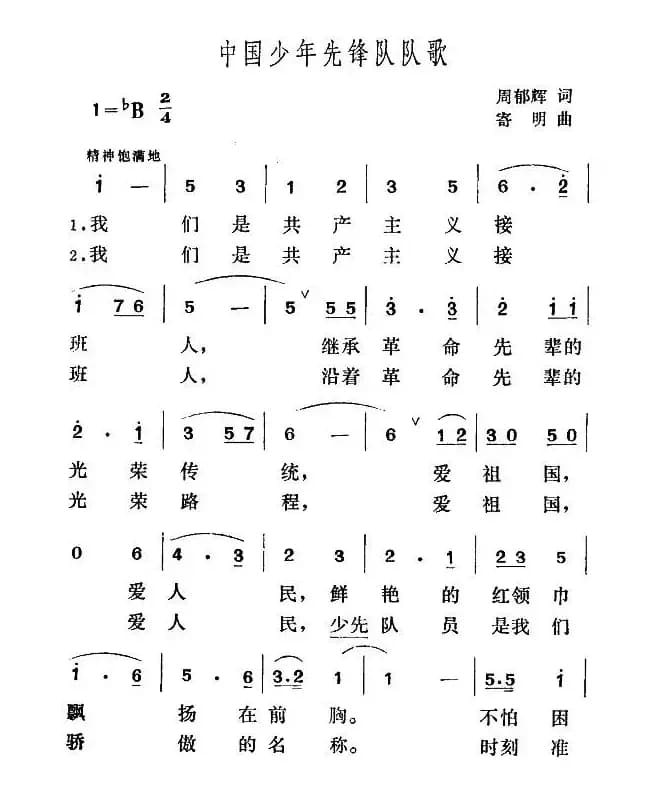 中国少年先锋队队歌
1=♭B 2/4
周郁辉 词
寄明 曲
精神饱满地
i — | 5 3 | 1 2 | 3 5 | 6 · 2 |
1.我 们 是 共 产 主 义 接
2.我 们 是 共 产 主 义 接
i 76 | 5 — | 5 ∨ 55 | 3 · 3 | 2 i i |
班 人, 继承 革 命 先 辈的
班 人, 沿着 革 命 先 辈的
2 · i | 3 57 | 6 — | 6 ∨ 12 | 30 50 |
光 荣 传 统, 爱 祖 国,
光 荣 路 程, 爱 祖 国,
0 6 | 4 · 3 | 2 3 | 2 · 1 | 23 5 |
爱 人 民, 鲜 艳 的 红领 巾
爱 人 民, 少先 队 员 是我 们
i · 6 | 5 · 6 | 3·2 1 | 1 — | 5·5 i |
飘 扬 在 前 胸。 不怕 困
骄 傲 的 名 称。 时刻 准